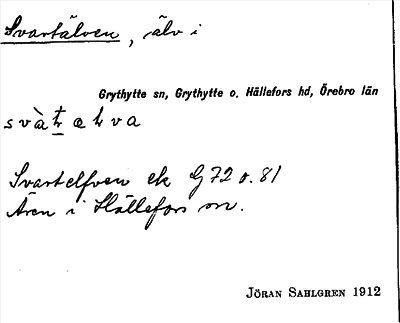 Svartälven, älv i
Grythytte sn, Grythytte o. Hällefors hd, Örebro län
Svartelfven ek G 72 o. 81
Åren i Hällefors sn.
JÖRAN SAHLGREN 1912